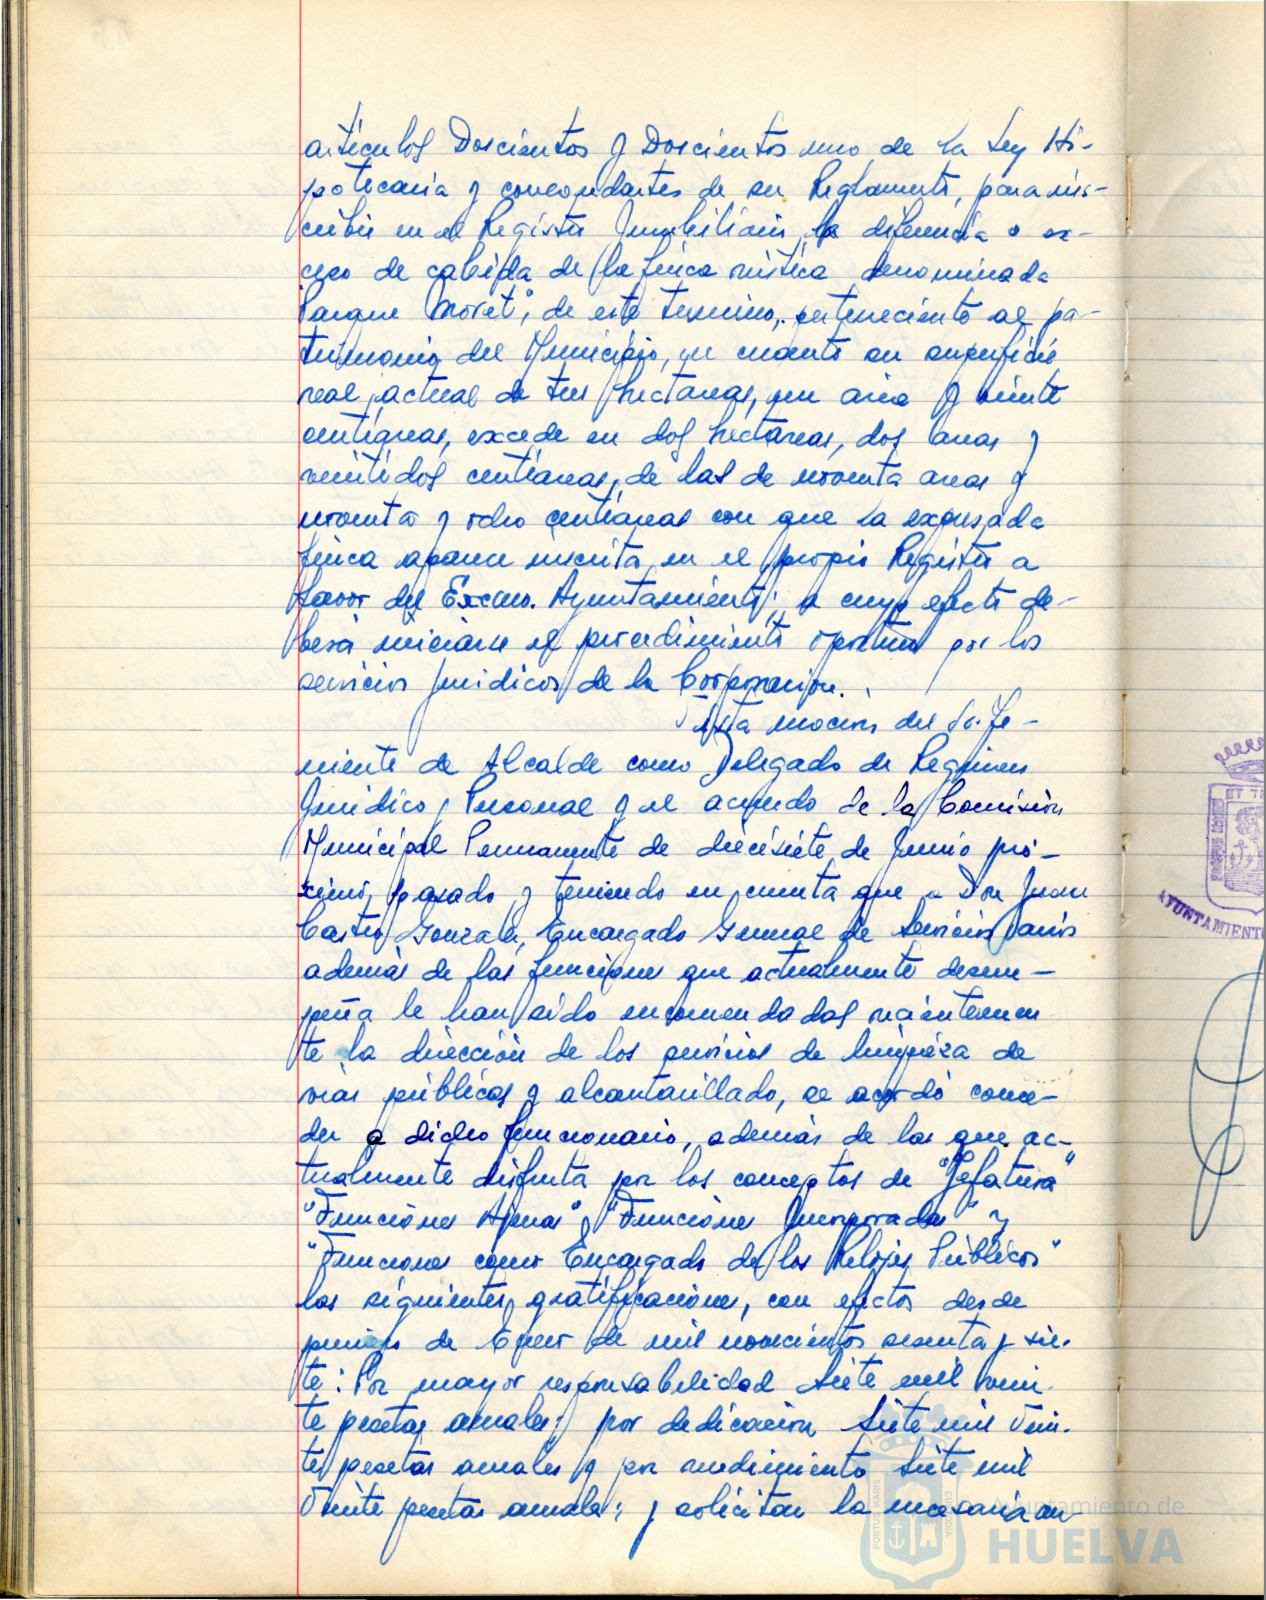 artículos Doscientos y Doscientos uno de la Ley Hi-
potecaria y concordantes de su Reglamento, para ins-
cribir en el Registro Inmobiliario la diferencia o ex-
ceso de cabida de la finca rústica denominada
"Parque Moret", de este término, perteneciente al pa-
trimonio del Municipio, en cuanto su superficie
real y actual de tres hectáreas, un area y veinte
centiáreas, excede en dos hectáreas, dos areas y
veintidos centiáreas, de las de noventa areas y
noventa y ocho centiáreas con que la expresada
finca aparece inscrita en el propio Registro a
favor del Excmo. Ayuntamiento; a cuyo efecto de-
berá iniciarse el procedimiento oportuno por los
servicios jurídicos de la Corporación.
Vista moción del Sr. Te-
niente de Alcalde como Delegado de Régimen
Jurídico y Personal y el acuerdo de la Comisión
Municipal Permanente de diecisiete de Junio pró-
ximo pasado y teniendo en cuenta que a Don Juan
Castro Gonzalez, Encargado General de Servicios varios
además de las funciones que actualmente desem-
peña le han sido encomendadas recientemen-
te la dirección de los servicios de limpieza de
vías públicas y alcantarillado, se acordó conce-
der a dicho funcionario, además de las que ac-
tualmente disfruta por los conceptos de "Jefatura"
"Funciones Ajenas" y "Funciones Incorporadas" y
"Funciones como Encargado de los Relojes Públicos"
las siguientes gratificaciones, con efectos desde
primero de Enero de mil novecientos sesenta y sie-
te: Por mayor responsabilidad siete mil vein-
te pesetas anuales; por dedicación siete mil vein-
te pesetas anuales y por rendimiento siete mil
veinte pesetas anuales; y solicitar la necesaria au-
AYUNTAMIENTO
Ayuntamiento de
HUELVA
PORTUS MARIS